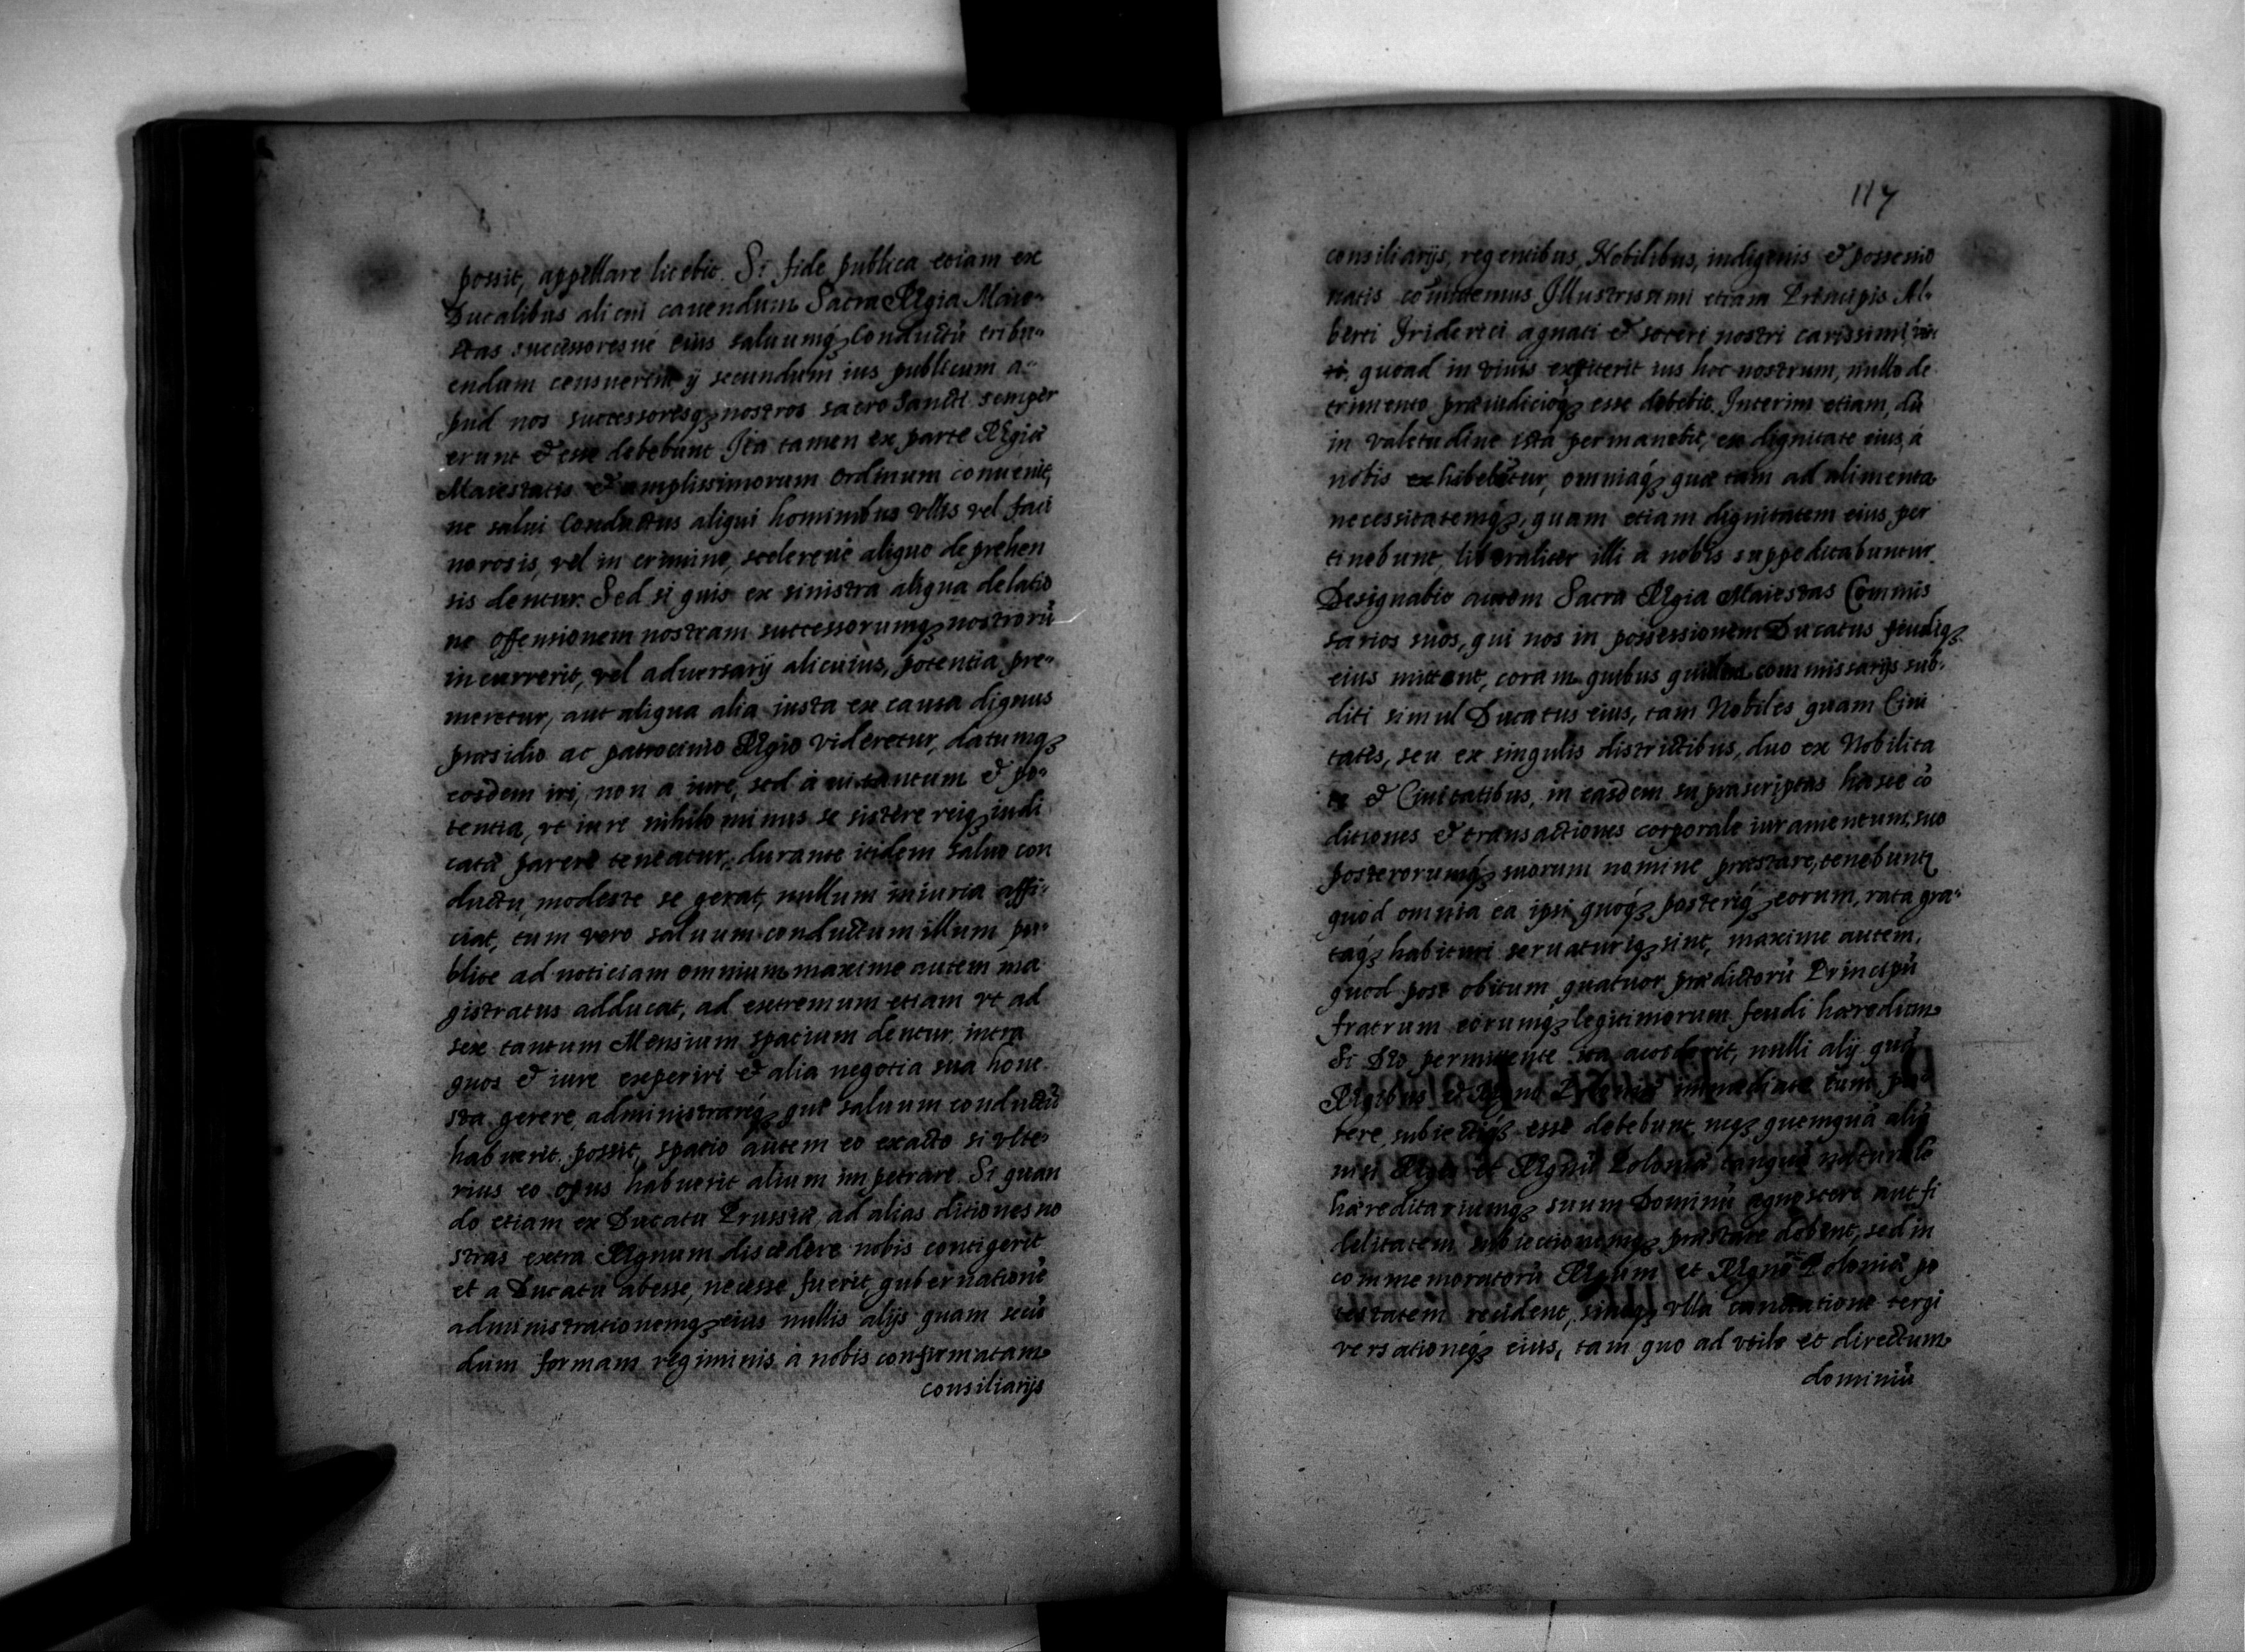 possit, appellare licebit. Si fide publica etiam ex
Ducalibus alicui cauendum Sacra Regia Maie-
stas successoresué eius saluumq́ꝫ Conductū tribu-
endum censuerint ij secundum ius publicum a-
pud nos successoresqꝫ nostros sacro Sancti semper
erunt & esse debebunt Ita tamen ex parte Regiæ
Maiestatis & amplissimorum Ordinum conuenit,
ne salui Conductus aliqui hominibus vllis vel faci
norosis, vel in crimine, scelereué aliquo deprehen
sis dentur. Sed si quis ex sinistra aliqua delatio
ne offensionem nostram successorumqꝫ nostrorū
incurrerit, vel aduersarij alicuius, potentia pre-
meretur, aut aliqua alia iusta ex causa dignus
præsidio ac patrocinio Regio videretur, datumqꝫ
eosdem iri, non a iure, sed á vi tantum & po-
tentia, vt iure nihilominus se sistere reiqꝫ iudi
catæ parere teneatur, durante itidem saluo con
ductu, modeste se gerat, nullum iniuria affi-
ciat, tum vero saluum conductum illum pu-
blice ad noticiam omnium maxime autem ma
gistratus adducat, ad extremum etiam vt ad
sex tantum Mensium spacium dentur, intra
quos & iure experiri & alia negotia sua hone
sta gerere, administrareq́ꝫ qui saluum conductū
habuerit possit, spatio autem eo exacto si vlte-
rius eo opus habuerit alium impetrare. Si quan
do etiam ex Ducatu Prussiæ, ad alias ditiones no
stras extra Regnum discedere nobis contigerit
et a Ducatu abesse, necesse fuerit, gubernationē
administrationemqꝫ eius nullis alijs quam secū
dum formam regiminis á nobis confirmatam
consiliarijs
117
consiliarijs, regentibus, Nobilibus, indigenis & possessio
natis comittemus Illustrissimi etiam Principis Al-
berti Friderici agnati & soceri nostri carissimi
quoad in viuis extiterit ius hoc nostrum, nullo de
trimento præiudicioqꝫ esse debebit. Interim etiam, dū
in valetudine ista permanebit, ex dignitate eius, á
nobis exhibebitur, omniaq́ꝫ quæ tam ad alimenta
necessitatemq́ꝫ, quam etiam dignitatem eius per
tinebunt, liberaliter illi á nobis suppeditabuntur.
Designabit autem Sacra Regia Maiestas Commis
sarios suos, qui nos in possessionem Ducatus feudiqꝫ
eius mittant, coram quibus quidem commissarijs sub-
diti simul Ducatus eius, tam Nobiles quam Ciui
tates, seu ex singulis districtibus, duo ex Nobilita
te & Ciuitatibus, in easdem supra scriptas hasce cō
ditiones & transactiones corporale iuramentum, suo
posterorumq́ꝫ suorum nomine præstare, tenebunt
quod omnia ea ipsi quoq́ꝫ posteriq́ꝫ eorum, rata gra-
taq́ꝫ habituri seruaturiqꝫ sint, maxime autem,
quod post obitum quatuor prædictorū Principū
fratrum eorumqꝫ legitimorum feudi hæredium
Si Deo permittente ita acciderit, nulli alij quā
Regibus & Regno Poloniæ immediate tum pa-
rere, subiectiqꝫ esse debebunt, neqꝫ quemquā aliū
nisi Regem et Regnū Poloniæ tanquā naturale
hæreditariumqꝫ suum Dominū agnoscere aut fi
delitatem subiectionemqꝫ præstare debent, sed in
commemoratorū Regum et Regni Poloniæ po
testatem recident, sineqꝫ vlla cunctatione tergi
versationeq́ꝫ eius, tam quo ad vtile et directum
dominiū